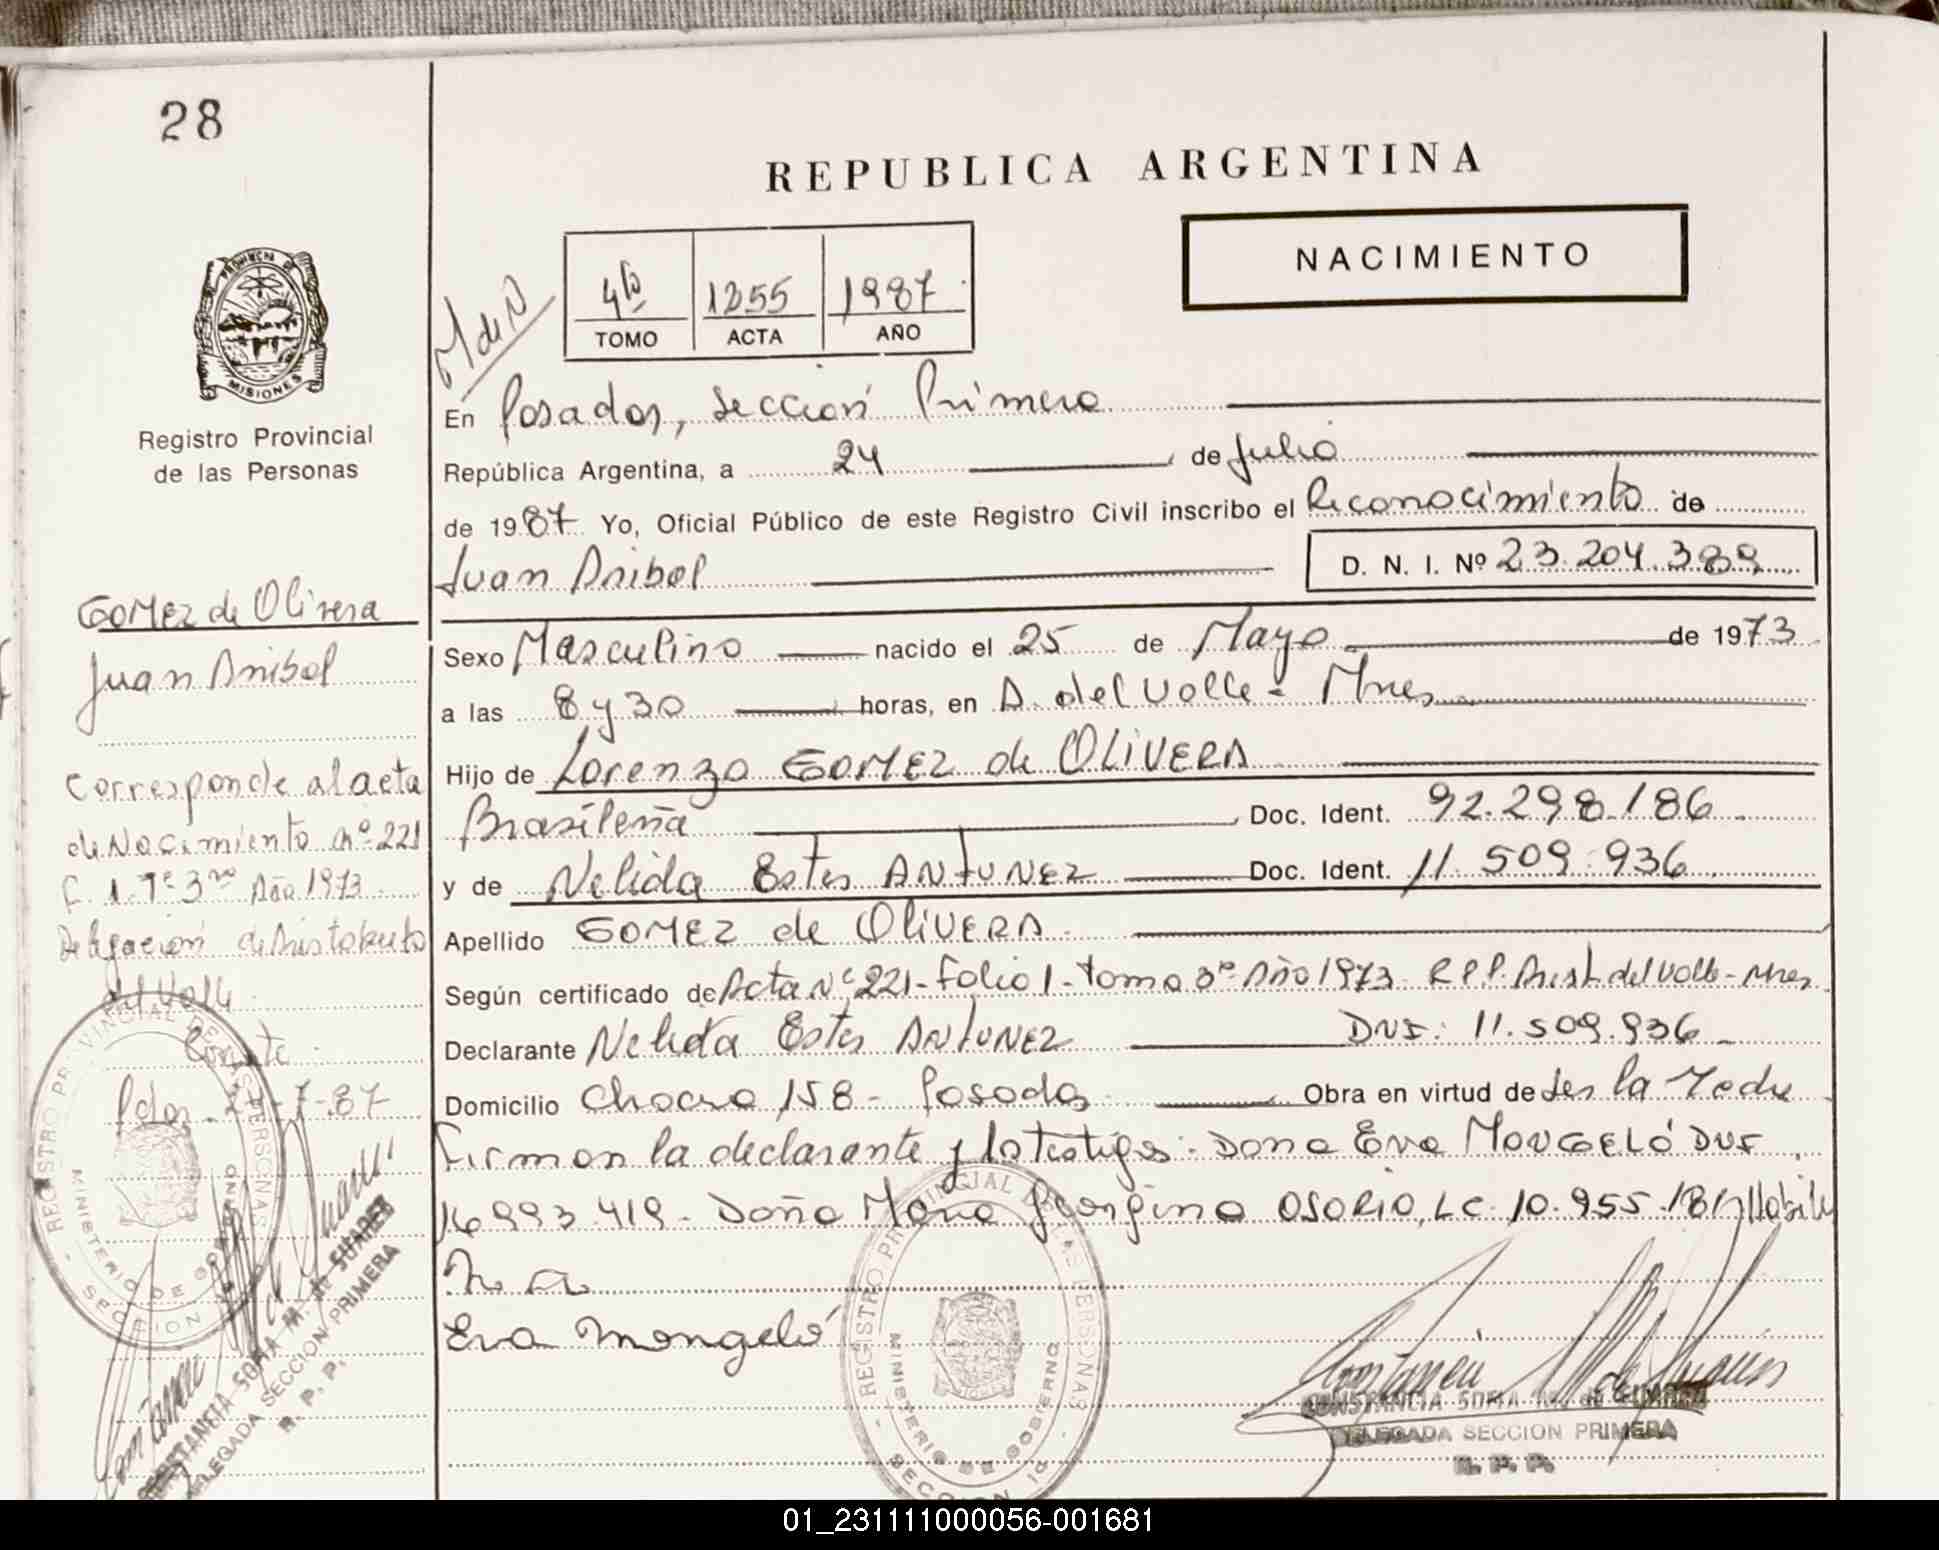 28
REPUBLICA ARGENTINA
NACIMIENTO
M de N
4to 1255 1987
TOMO ACTA AÑO
PROVINCIA DE
MISIONES
Registro Provincial
de las Personas
En Posadas, Sección Primera
República Argentina, a 24 de Julio
de 1987 Yo, Oficial Público de este Registro Civil inscribo el Reconocimiento de
Juan Anibal D. N. I. Nº 23.204.389
Sexo Masculino nacido el 25 de Mayo de 1973
a las 8 y 30 horas, en A. del Valle - Mnes
Hijo de Lorenzo GOMEZ de OLIVERA
Brasileña Doc. Ident. 92.298.186
y de Nelida Ester ANTUNEZ Doc. Ident. 11.509.936
Apellido GOMEZ de OLIVERA
Según certificado de Acta Nº 221 - Folio 1 - tomo 3º Año 1973 R.P.P. Arist. del Valle - Mnes
Declarante Nelida Ester ANTUNEZ DNI: 11.509.936
Domicilio Chacra 158 - Posadas Obra en virtud de ser la Madre
Firman la declarante y la testigos: Doña Eva MONGELÓ DNI
16.993.419 - Doña Maria Georgina OSORIO, LC. 10.955.181
N. A
Eva Mongeló
GOMEZ de Olivera
Juan Anibal
Corresponde al acta
de Nacimiento nº 221
F. 1. Tº 3ro Año 1973
Delegación de Aristobulo
del Valle
Conste
Pdas. -7-87
REGISTRO PROVINCIAL DE LAS PERSONAS
MINISTERIO DE GOBIERNO
SECCION
CONSTANCIA SOFIA M. de SUAREZ
DELEGADA SECCION PRIMERA
R. P. P.
REGISTRO PROVINCIAL DE LAS PERSONAS
MINISTERIO DE GOBIERNO
SECCION
CONSTANCIA SOFIA M. de SUAREZ
DELEGADA SECCION PRIMERA
R. P. P.
01_231111000056-001681